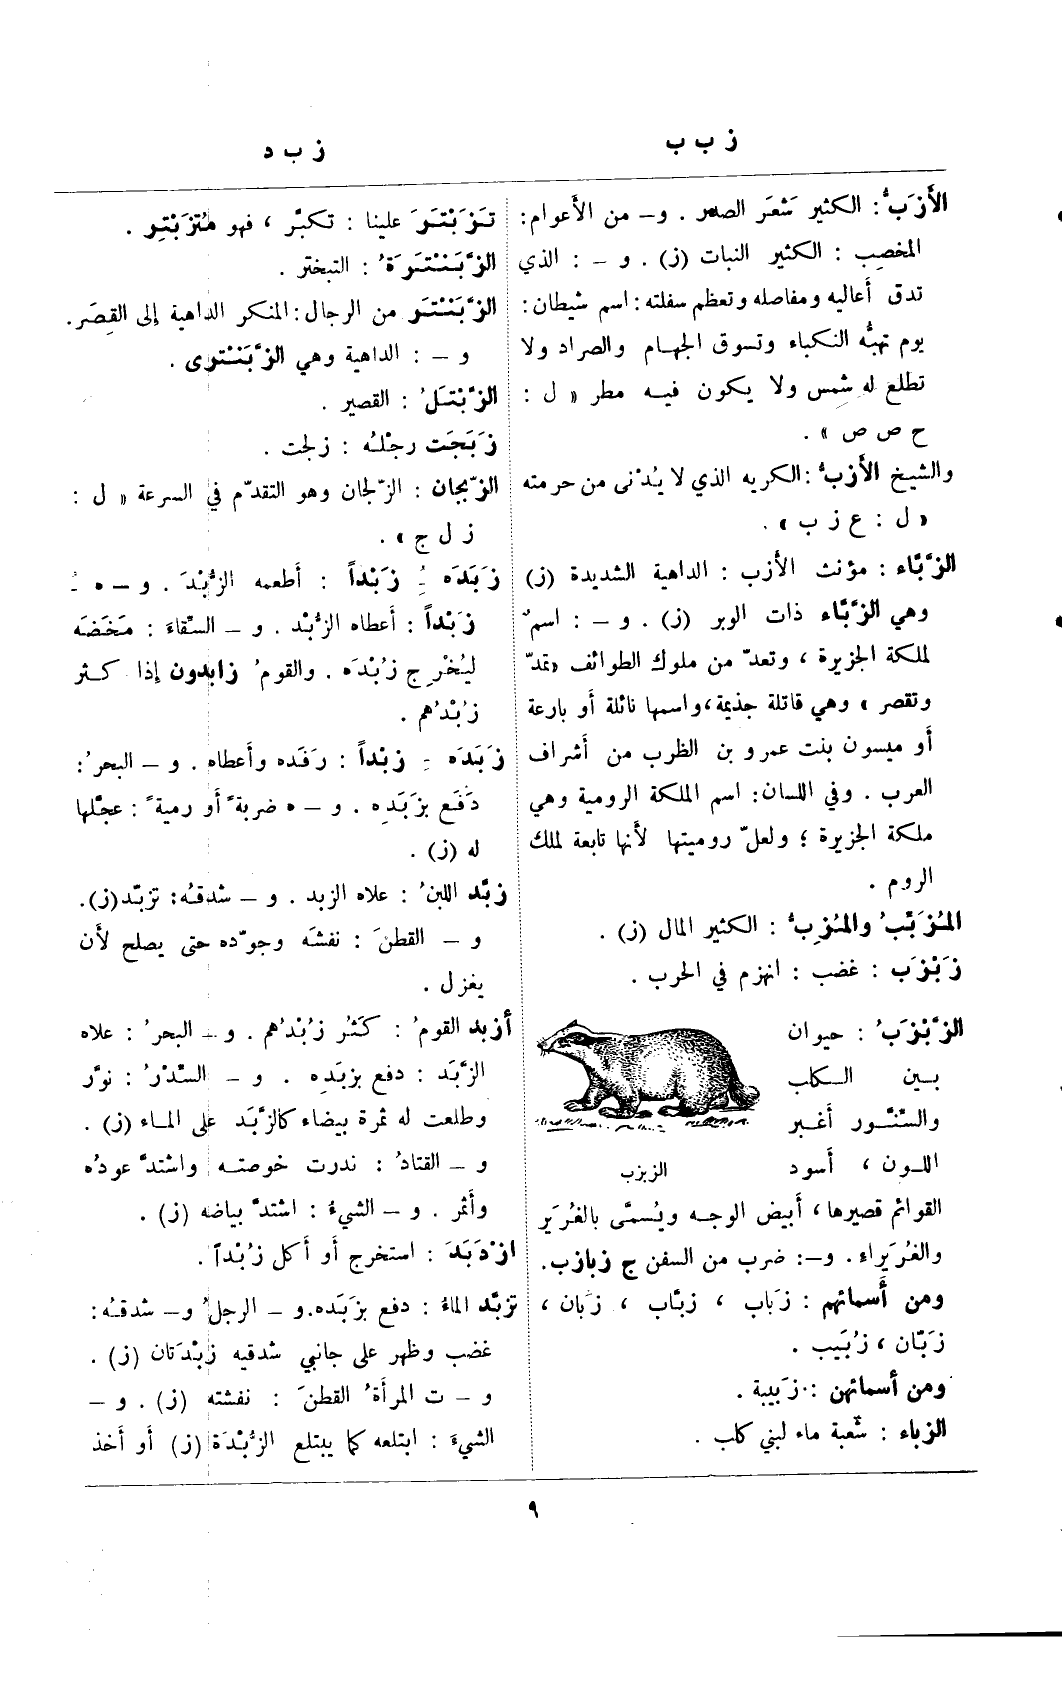 ز ب ب
ز ب د
الأَزَبُّ: الكثير شَعَر الصدر . و– من الأعوام:
المخصِب : الكثير النبات (ز) . و – : الذي
تدق أعاليه ومفاصله وتعظم سفلته: اسم شيطان:
يوم تهبُّه النكباء وتسوق الجهام والصراد ولا
تطلع له شمس ولا يكون فيه مطر « ل :
ح ص ص » .
والشيخ الأَزبُّ: الكريه الذي لا يُدْنى من حرمته
« ل : ع ز ب » .
الزَّبَّاء : مؤنث الأزب : الداهية الشديدة (ز)
وهي الزَّبَّاء ذات الوبر (ز) . و – : اسمٌ
لملكة الجزيرة ، وتعدّ من ملوك الطوائف «تمدّ
وتقصر » وهي قاتلة جذيمة، واسمها نائلة أو بارعة
أو ميسون بنت عمرو بن الظرب من أشراف
العرب . وفي اللسان: اسم الملكة الرومية وهي
ملكة الجزيرة ؛ ولعلّ روميتها لأنها تابعة لملك
الروم .
المُزَبَّبُ والمُزِبُّ : الكثير المال (ز) .
زَبْزَب : غضب : انهزم في الحرب .
الزَّبْزَبُ : حيوان
بين الكلب
والسِّنَّور أغبر
اللون ، أسود
الزبزب
القوائم قصيرها، أبيض الوجه ويُسمَّى بالغُرَير
والغُرَيراء . و–: ضرب من السفن ج زبازب.
ومن أسمائهم : زَباب ، زبَّاب ، زبان ،
زَبَّان ، زُبَيب .
ومن أسمائهن : زَبيبة .
الزباء : شعبة ماء لبني كلب .
تَزَبْتَرَ علينا : تكبَّر ، فهو مُتَزَبْتِر .
الزَّبَنْتَرَةُ : التبختر .
الزَّبَنْتَر من الرجال: المنكر الداهية إلى القِصَر.
و – : الداهية وهي الزَّبَنْترى .
الزَّبْتَلُ : القصير .
زَبَجَت رجْلُه : زلجت .
الزّبجان : الزّلجان وهو التقدّم في السرعة « ل :
ز ل ج » .
زَبَدَه ُ زَبْداً : أطعمه الزُّبْدَ . و – ه ِ
زَبْداً : أعطاه الزُّبْد . و – السِّقاءَ : مَخَضَه
ليُخْرِج زُبْدَه . والقومُ زابدون إذا كثر
زُبْدُهم .
زَبَدَه ِ زبْداً : رَفَده وأعطاه . و – البحرُ:
دَفَع بزَبَدِه . و – ه ضربةً أو رميةً : عجَّلها
له (ز) .
زبَّد اللبنُ : علاه الزبد . و – شدقُه: تزبّد(ز).
و – القطنَ : نفشَه وجوّده حتى يصلح لأن
يغزل .
أزبد القومُ : كَثُر زُبْدُهم . و – البحرُ : علاه
الزَّبَد : دفع بزبَدِه . و – السِّدْرُ : نوَّر
وطلعت له ثمرة بيضاء كالزَّبَد على الماء (ز) .
و – القتادُ : ندرت خوصته واشتدَّ عودُه
وأثمر . و – الشيءُ : اشتدَّ بياضه (ز) .
ازْدَبَدَ : استخرج أو أكل زُبْداً .
تزبَّد الماءُ : دفع بزَبَده. و – الرجلُ و– شدقُه:
غضب وظهر على جانبي شدقيه زَبْدَتان (ز) .
و – ت المرأةُ القطنَ : نفشته (ز) . و –
الشيءَ : ابتلعه كما يبتلع الزُّبْدَة (ز) أو أخذ
٩